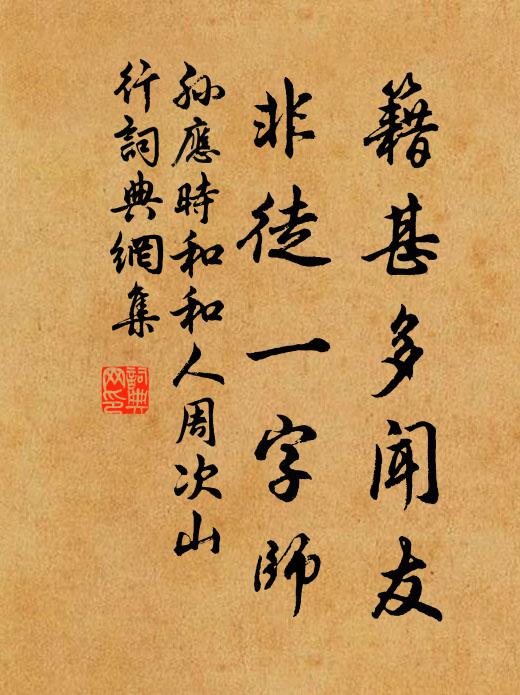 籍甚多聞友
非徒一字師
孙應時和和人周次山
行詞典網集
詞典
网印